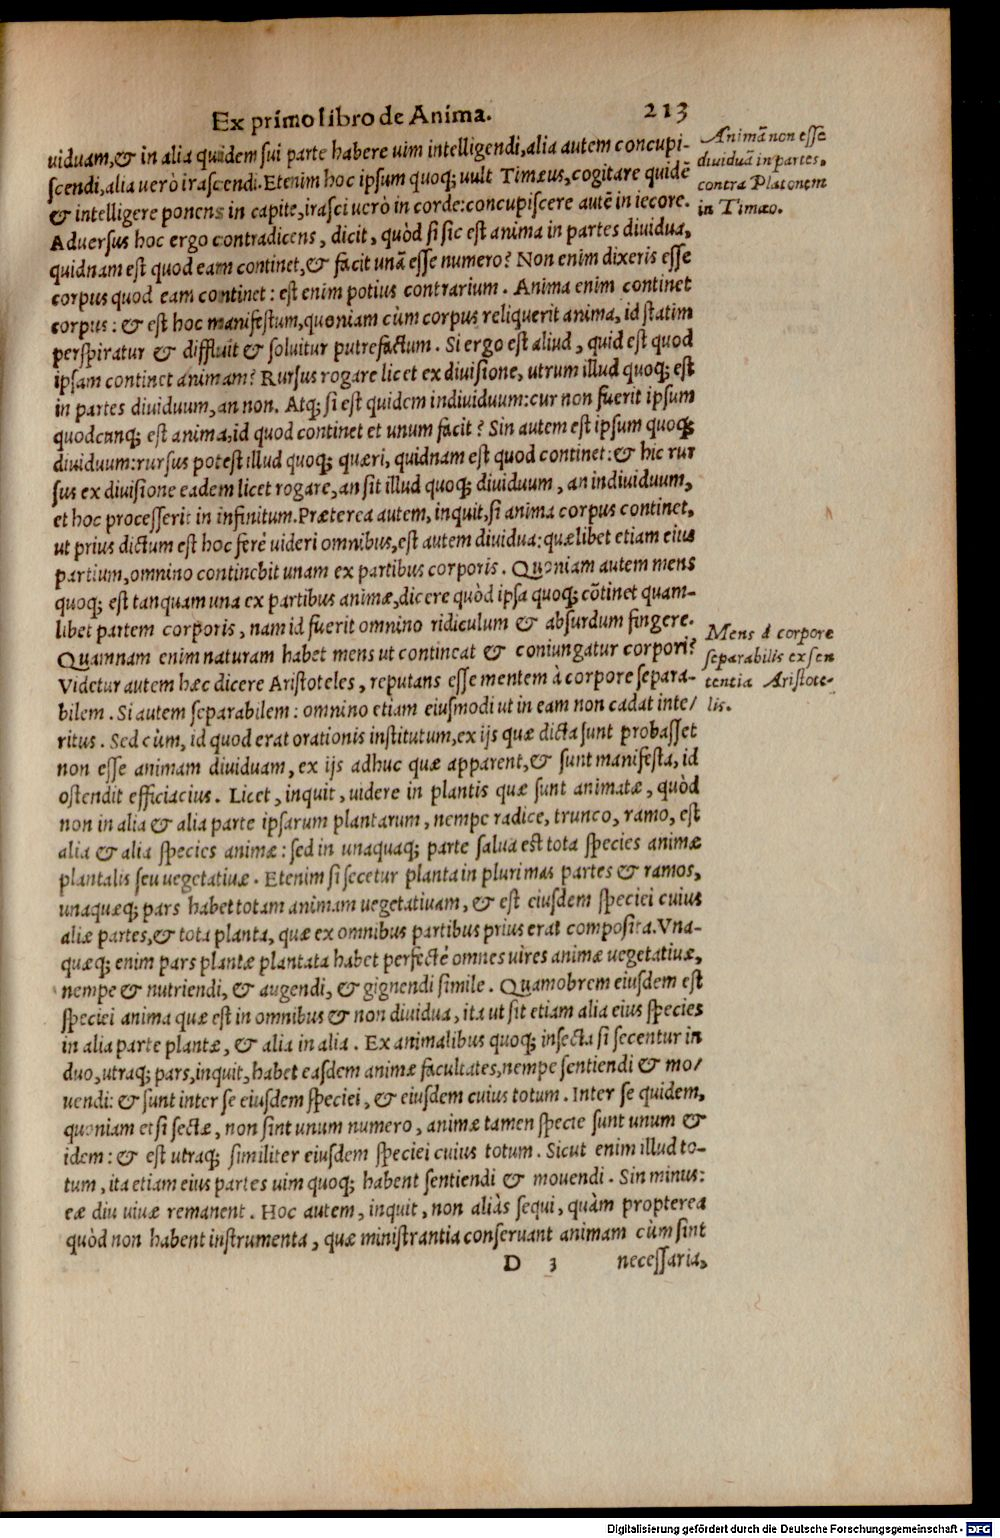 Ex primo libro de Anima. 213
uiduam,& in alia quidem sui parte habere uim intelligendi,alia autem concupi-
scendi,alia uerò irascendi.Etenim hoc ipsum quoq; uult Timæus,cogitare quidẽ
& intelligere ponens in capite,irasci uerò in corde:concupiscere autẽ in iecore.
Aduersus hoc ergo contradicens, dicit, quòd si sic est anima in partes diuidua,
quidnam est quod eam continet,& facit unã esse numero? Non enim dixeris esse
corpus quod eam continet: est enim potius contrarium. Anima enim continet
corpus: & est hoc manifestum,quoniam cùm corpus reliquerit anima, id statim
perspiratur & diffluit & soluitur putrefactum. Si ergo est aliud, quid est quod
ipsam continet animam? Rursus rogare licet ex diuisione, utrum illud quoq; est
in partes diuiduum, an non. Atq; si est quidem indiuiduum:cur non fuerit ipsum
quodcunq; est anima,id quod continet et unum facit? Sin autem est ipsum quoq;
diuiduum:rursus potest illud quoq; quæri, quidnam est quod continet:& hic rur
sus ex diuisione eadem licet rogare,an sit illud quoq; diuiduum, an indiuiduum,
et hoc processerit in infinitum.Præterea autem, inquit,si anima corpus continet,
ut prius dictum est hoc ferè uideri omnibus,est autem diuidua:quælibet etiam eius
partium,omnino continebit unam ex partibus corporis. Quoniam autem mens
quoq; est tanquam una ex partibus animæ,dicere quòd ipsa quoq; cõtinet quam-
libet partem corporis, nam id fuerit omnino ridiculum & absurdum fingere.
Quamnam enim naturam habet mens ut contineat & coniungatur corpori?
Videtur autem hæc dicere Aristoteles, reputans esse mentem à corpore separa-
bilem. Si autem separabilem: omnino etiam eiusmodi ut in eam non cadat inte/
ritus. Sed cùm, id quod erat orationis institutum,ex ijs quæ dicta sunt probasset
non esse animam diuiduam, ex ijs adhuc quæ apparent,& sunt manifesta, id
ostendit efficiacius. Licet, inquit, uidere in plantis quæ sunt animatæ, quòd
non in alia & alia parte ipsarum plantarum, nempe radice, trunco, ramo, est
alia & alia species animæ: sed in unaquaq; parte salua est tota species animæ
plantalis seu uegetatiuæ. Etenim si secetur planta in plurimas partes & ramos,
unaquæq; pars habet totam animam uegetatiuam, & est eiusdem speciei cuius
aliæ partes,& tota planta, quæ ex omnibus partibus prius erat composita.Vna-
quæq; enim pars plantæ plantata habet perfectè omnes uires animæ uegetatiuæ,
nempe & nutriendi, & augendi, & gignendi simile. Quamobrem eiusdem est
speciei anima quæ est in omnibus & non diuidua, ita ut sit etiam alia eius species
in alia parte plantæ, & alia in alia. Ex animalibus quoq; insecta si secentur in
duo,utraq; pars,inquit,habet easdem animæ facultates,nempe sentiendi & mo/
uendi: & sunt inter se eiusdem speciei, & eiusdem cuius totum. Inter se quidem,
quoniam etsi sectæ, non sint unum numero, animæ tamen specie sunt unum &
idem: & est utraq; similiter eiusdem speciei cuius totum. Sicut enim illud to-
tum, ita etiam eius partes uim quoq; habent sentiendi & mouendi. Sin minus:
eæ diu uiuæ remanent. Hoc autem, inquit, non aliàs sequi, quàm propterea
quòd non habent instrumenta, quæ ministrantia conseruant animam cùm sint
D 3 necessaria,
Animã non esse
diuiduã in partes,
contra Platonem
in Timæo.
Mens à corpore
separabilis ex sen
tentia Aristote-
lis.
Digitalisierung gefördert durch die Deutsche Forschungsgemeinschaft - DFG